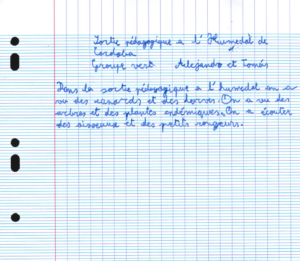 Sortie pédagogique a l'Humedal de
Cordoba
Groupe vert Alejandro et Tomás
Dans la sortie pédagogique a l'humedal on a
vu des canards et des
On a vu des
arbres et des plantes endémiques. On a écouter
des oiseaux et des petits rongeurs.